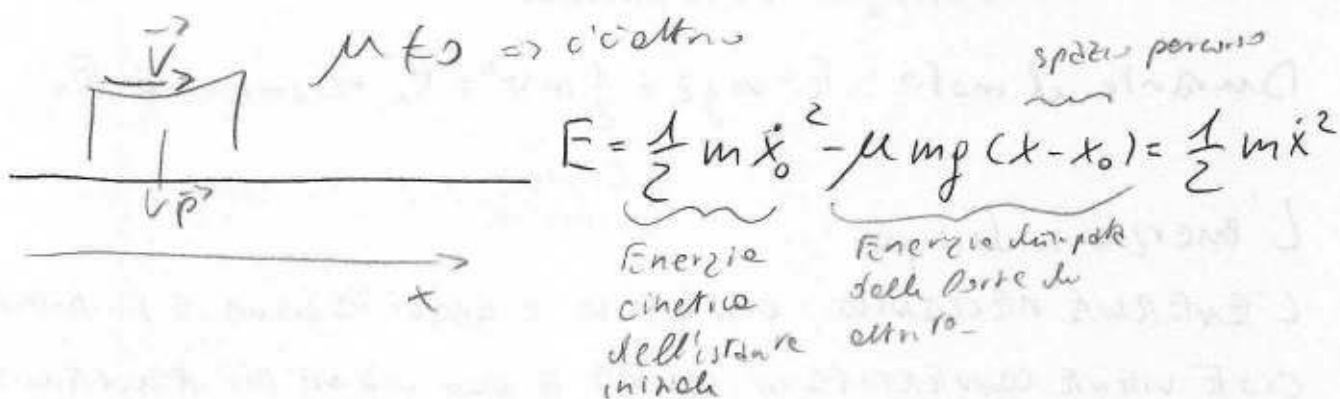 V
μ ≠ 0 => c'è attrito
spazio percorso
E = 1/2 m ẋ₀² - μ mg (x - x₀) = 1/2 m ẋ²
P
x
Energia
cinetica
dell'istante
iniziale
Energia dissipata
dalla forza di
attrito